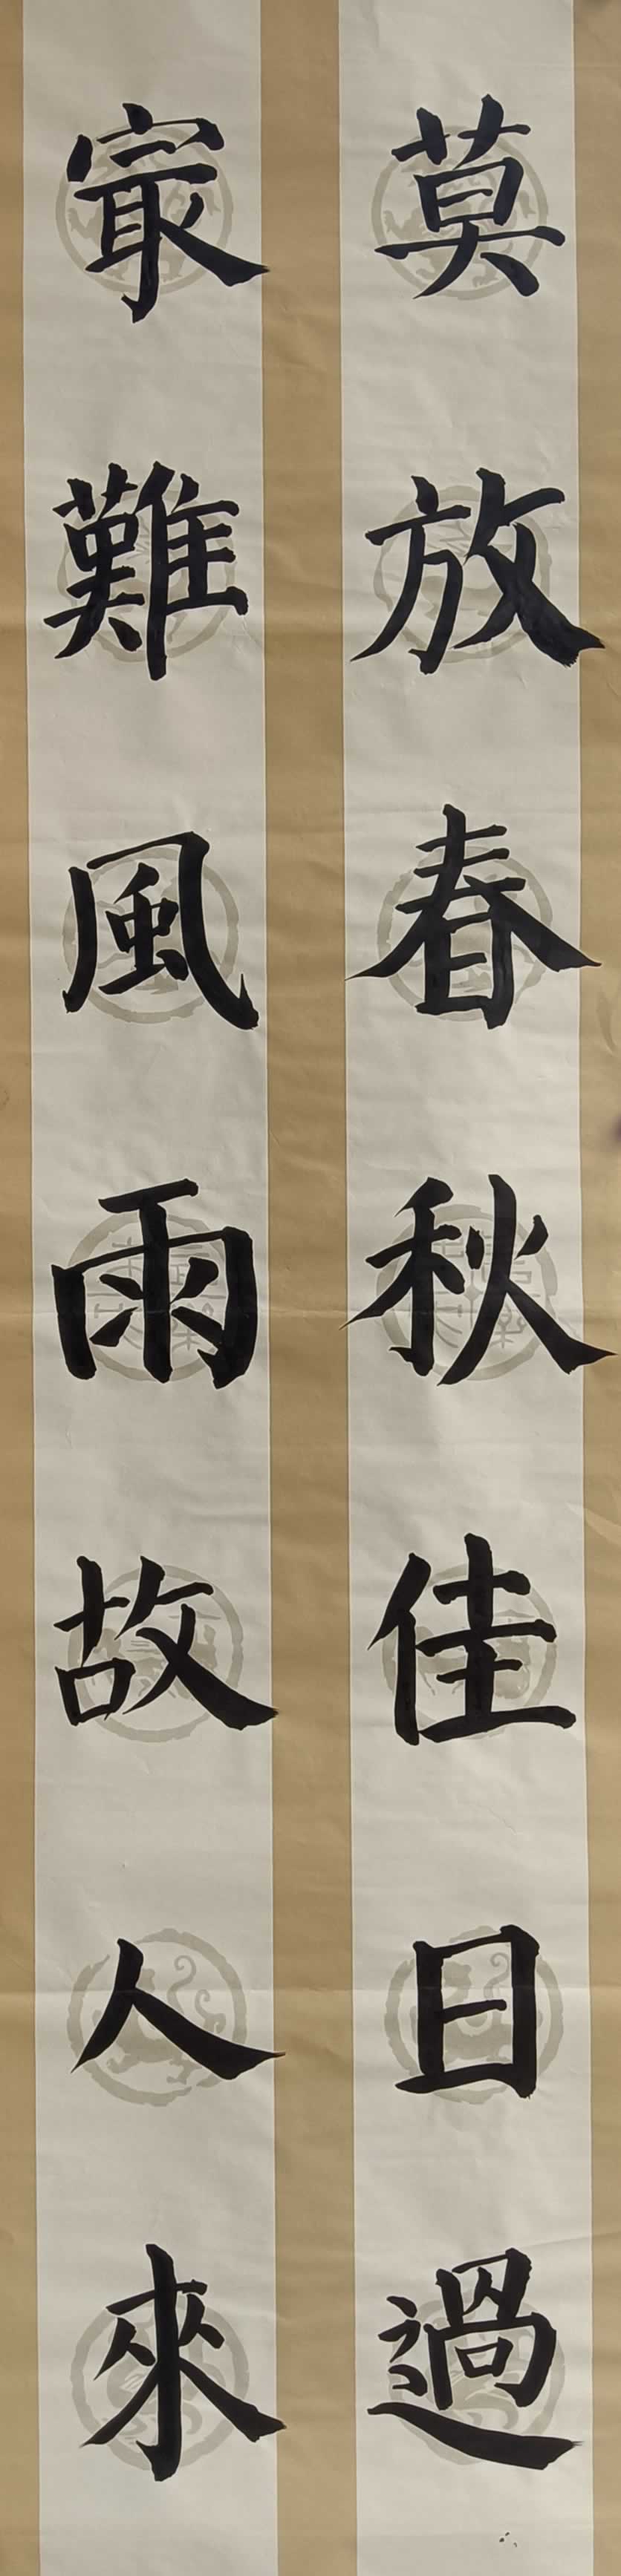 莫放春秋佳日過
冣難風雨故人來